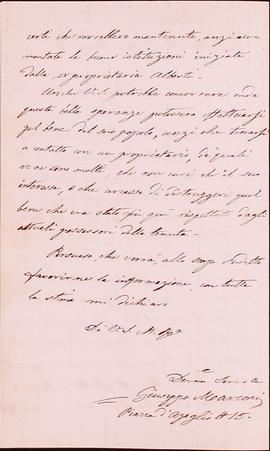 certi che vorrebbero mantenute, anzi au-
mentate le buone istituzioni iniziate
dalla ex proprietaria Alberti.
Anche V.S. potrebbe concorrere onde
queste belle speranze potessero effettuarsi
pel bene del suo popolo, anzi che trovarsi
a contatto con un proprietario, de' quali
ve ne sono molti, che non curi che il suo
interesse, e che cercasse di distruggere quel
bene che era stato fin qui rispettato dagli
attuali possessori della tenuta.
Persuaso, che vorrà, allo scopo sudetto
favorirmi le informazioni, con tutta
la stima mi dichiaro
Di V.S. M.
Giuseppe Marconi
Piazza d'Azeglio N 15.